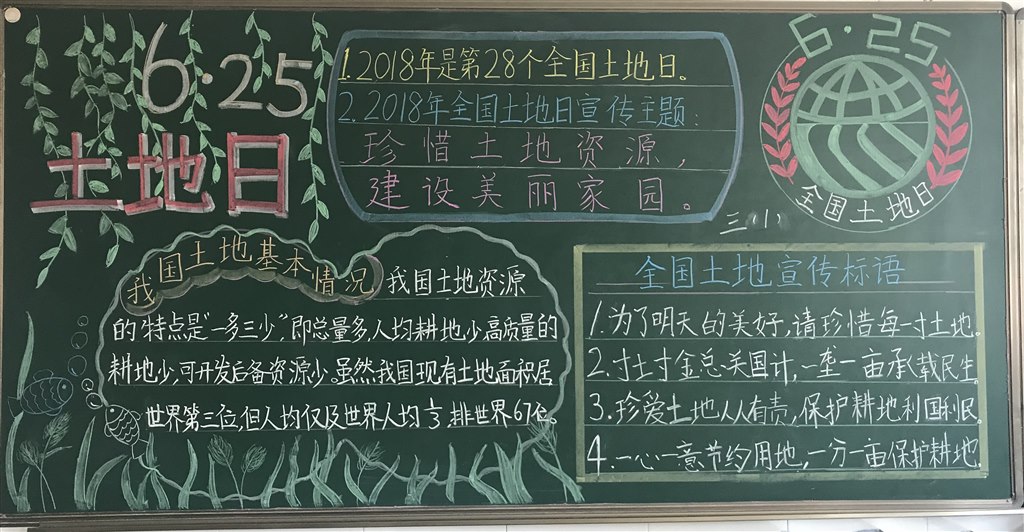 6·25
土地日
1.2018年是第28个全国土地日。
2.2018年全国土地日宣传主题:
珍惜土地资源,
建设美丽家园。
6·25
全国土地日
三(1)
我国土地基本情况
我国土地资源
的特点是“一多三少”,即总量多,人均耕地少,高质量的
耕地少,可开发后备资源少。虽然我国现有土地面积居
世界第三位,但人均仅及世界人均⅓,排世界67位。
全国土地宣传标语
1.为了明天的美好,请珍惜每一寸土地。
2.寸土寸金总关国计,一垄一亩承载民生
3.珍爱土地人人有责,保护耕地利国利民
4.一心一意节约用地,一分一亩保护耕地